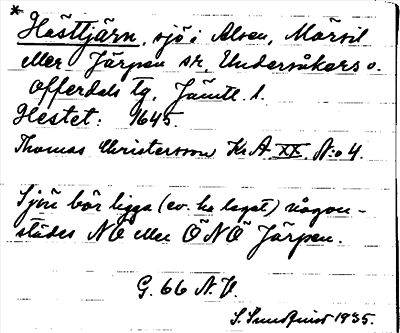 * Hästtjärn, sjö i Alsen, Mörsil
eller Järpen sn, Undersåkers o.
Offerdals tg, Jämtl. l.
Hestet: 1645.
Thomas Christersson Kr A XX. N:o 4.
Sjön bör ligga (ev. ha legat) någon-
städes NO eller ÖNÖ Järpen.
G. 66 N.V.
S. Sundqvist 1935.